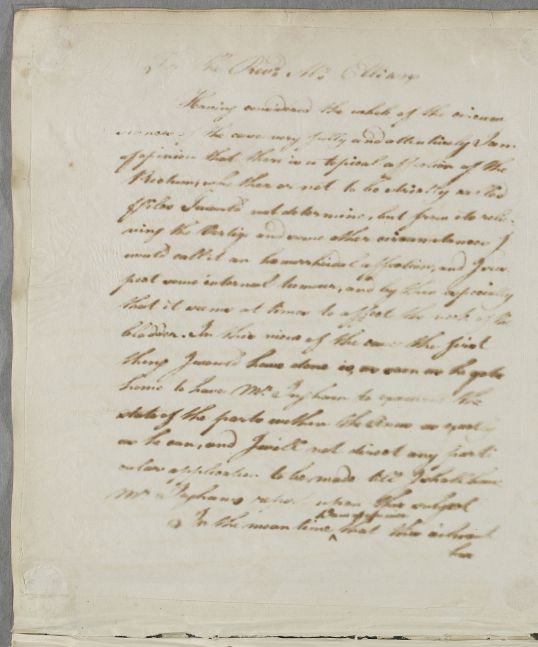 For the Revd. Mr. Ellison
Having considered the whole of the circum
stances of the case very fully and attentively I am
of opinion that there is a topical affection of the
Rectum, whether or not to be strictly called
Piles I would not determine, but from its relie
ving the Vertigo and some other circumstances I
would call it an hemorrhoidal affection, and I sus
pect some internal tumour, and by this especially
that it seems at times to affect the neck of the
bladder. In this view of the case the first
thing I would have done is, as soon as he gets
home to have Mr. Ingham to examine the
state of the parts within the Anus as exactly
as he can, and I will not direct any parti
cular application to be made till I shall have
Mr. Inghams upon this subject
In the mean time that the
be